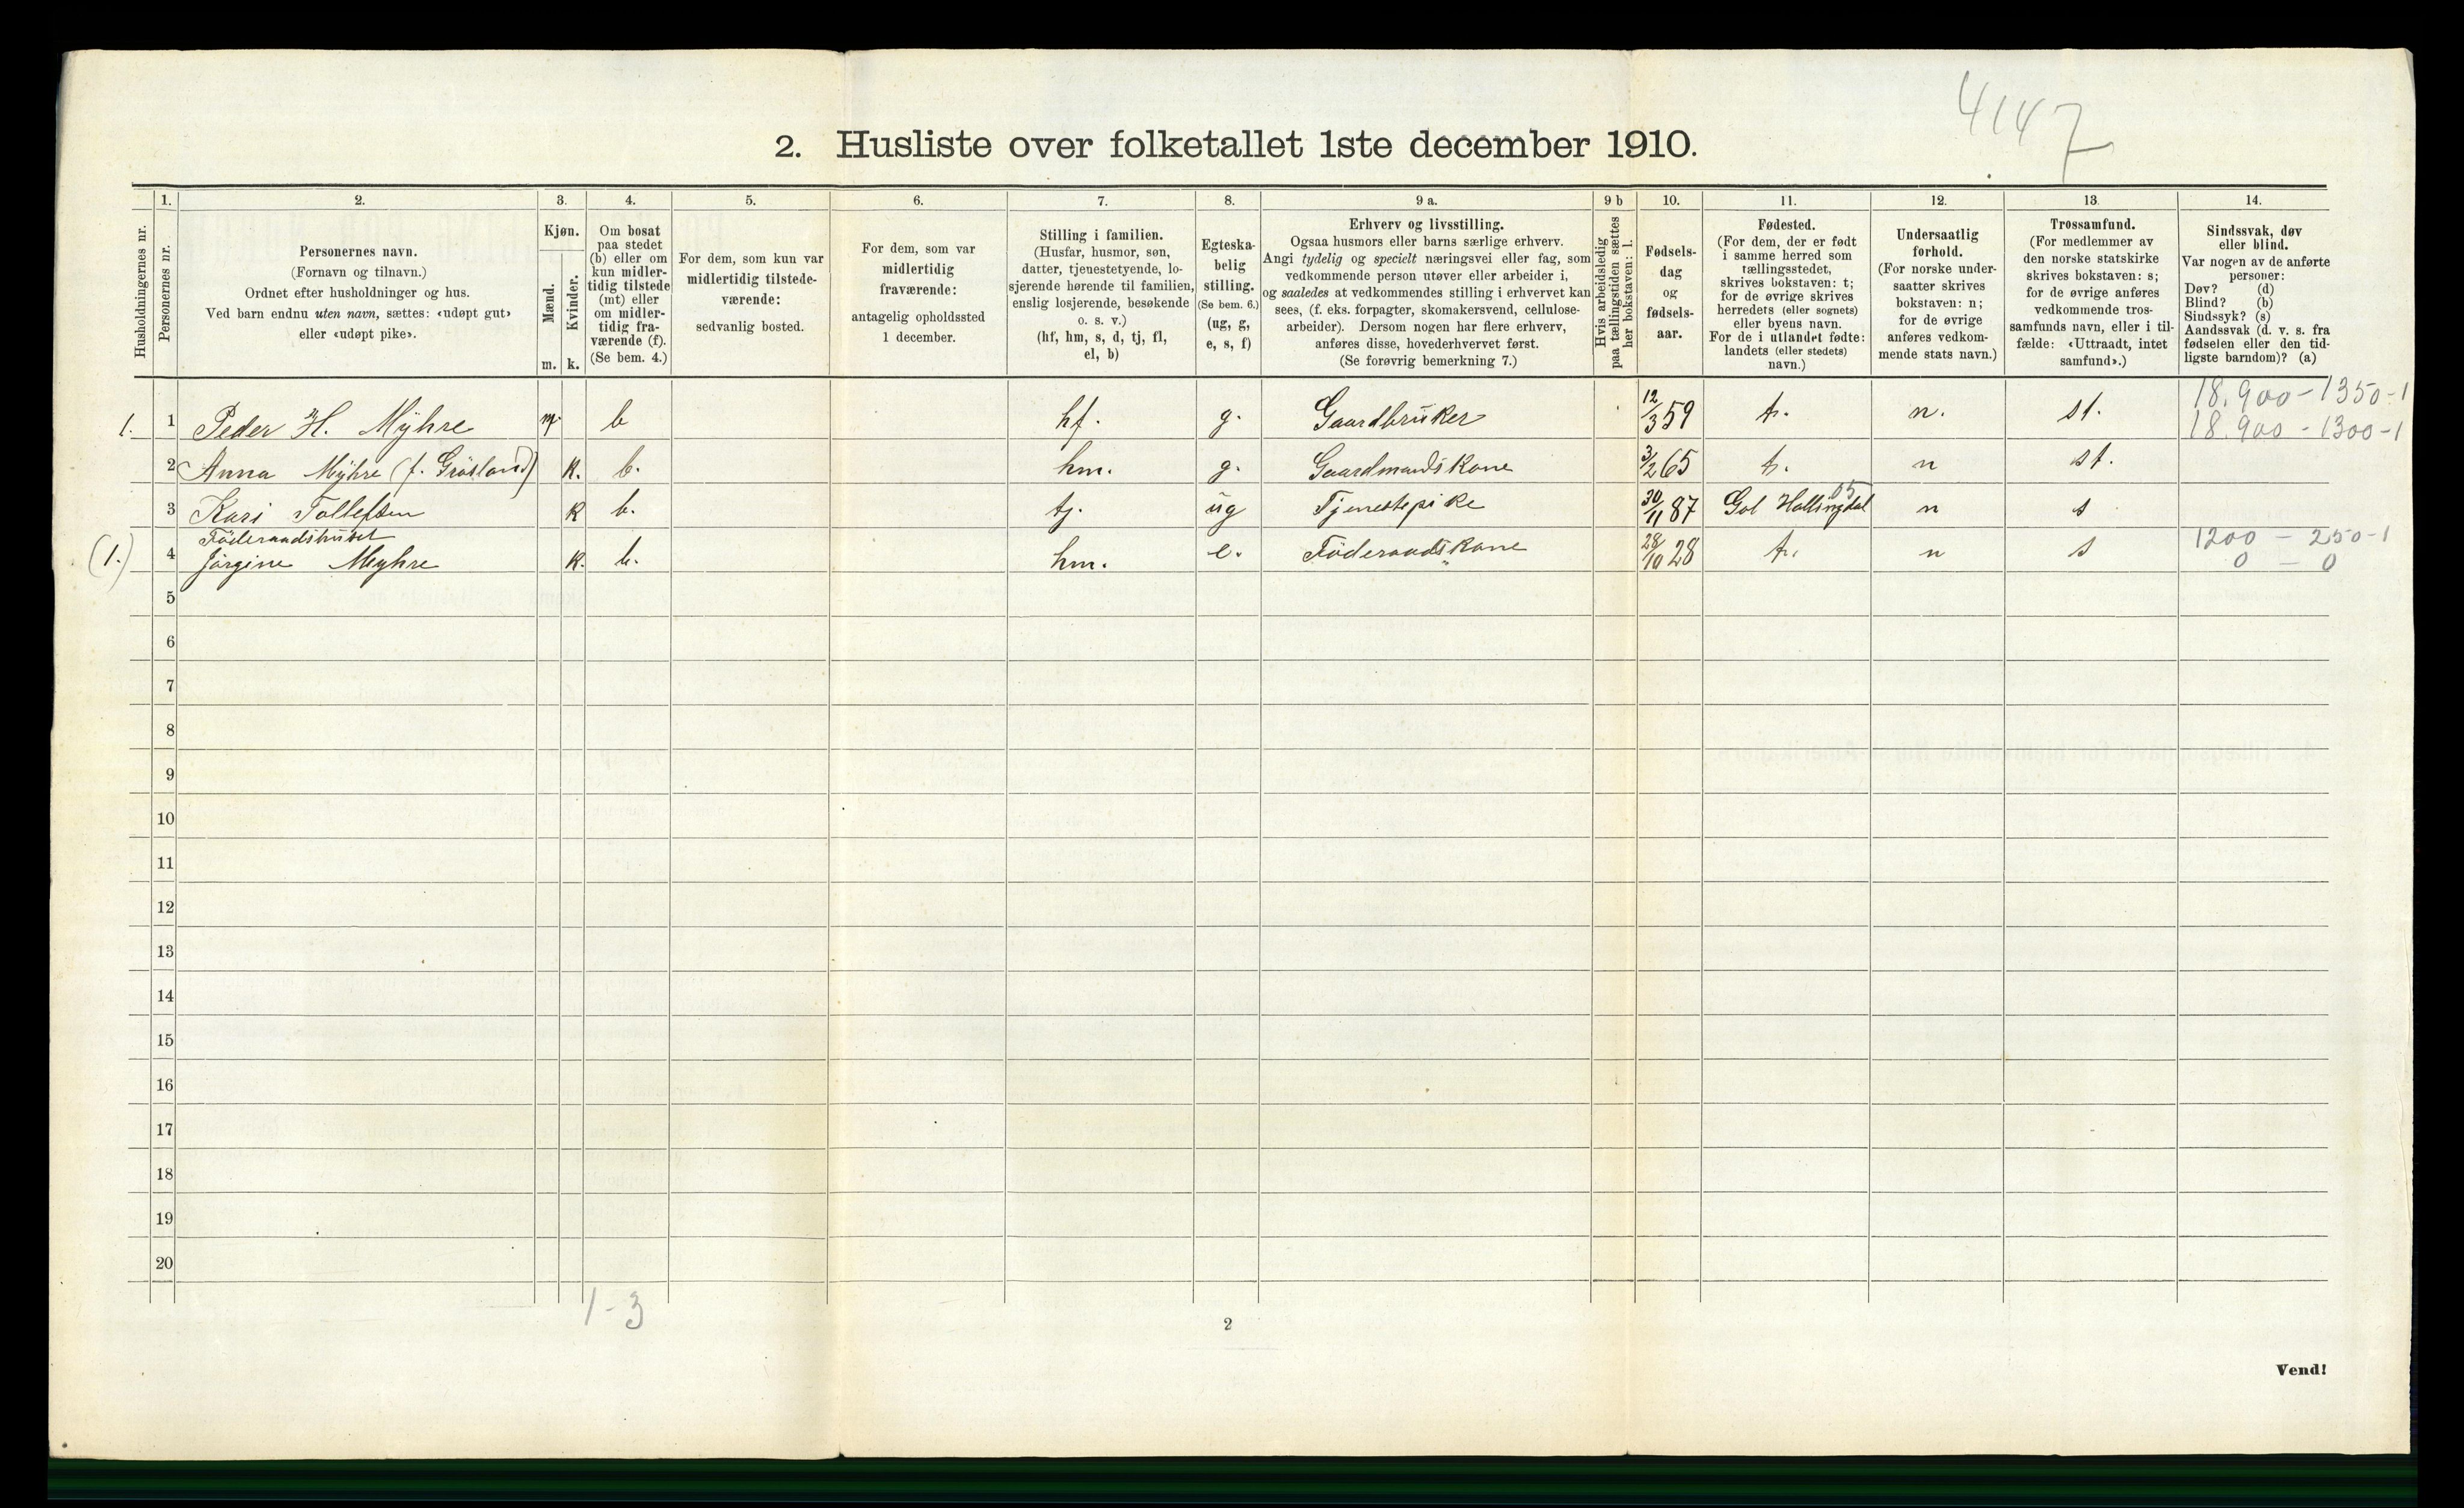 4147
2. Husliste over folketallet 1ste december 1910.
Husholdningernes nr.
1.
Personernes nr.
2.
Personernes navn.
(Fornavn og tilnavn.)
Ordnet efter husholdninger og hus.
Ved barn endnu uten navn, sættes: «udøpt gut»
eller «udøpt pike».
3.
Kjøn.
Mænd.
m.
Kvinder.
k.
4.
Om bosat
paa stedet
(b) eller om
kun midler-
tidig tilstede
(mt) eller
om midler-
tidig fra-
værende (f).
(Se bem. 4.)
5.
For dem, som kun var
midlertidig tilstede-
værende:
sedvanlig bosted.
6.
For dem, som var
midlertidig
fraværende:
antagelig opholdssted
1 december.
7.
Stilling i familien.
(Husfar, husmor, søn,
datter, tjenestetyende, lo-
sjerende hørende til familien,
enslig losjerende, besøkende
o. s. v.)
(hf, hm, s, d, tj, fl,
el, b)
8.
Egteska-
belig
stilling.
(Se bem. 6.)
(ug, g,
e, s, f)
9 a.
Erhverv og livsstilling.
Ogsaa husmors eller barns særlige erhverv.
Angi tydelig og specielt næringsvei eller fag, som
vedkommende person utøver eller arbeider i,
og saaledes at vedkommendes stilling i erhvervet kan
sees, (f. eks. forpagter, skomakersvend, cellulose-
arbeider). Dersom nogen har flere erhverv,
anføres disse, hovederhvervet først.
(Se forøvrig bemerkning 7.)
9 b
Hvis arbeidsledig
paa tællingstiden sættes
her bokstaven: l.
10.
Fødsels-
dag
og
fødsels-
aar.
11.
Fødested.
(For dem, der er født
i samme herred som
tællingsstedet,
skrives bokstaven: t;
for de øvrige skrives
herredets (eller sognets)
eller byens navn.
For de i utlandet fødte:
landets (eller stedets)
navn.)
12.
Undersaatlig
forhold.
(For norske under-
saatter skrives
bokstaven: n;
for de øvrige
anføres vedkom-
mende stats navn.)
13.
Trossamfund.
(For medlemmer av
den norske statskirke
skrives bokstaven: s;
for de øvrige anføres
vedkommende tros-
samfunds navn, eller i til-
fælde: «Uttraadt, intet
samfund».)
14.
Sindssvak, døv
eller blind.
Var nogen av de anførte
personer:
Døv? (d)
Blind? (b)
Sindssyk? (s)
Aandssvak (d. v. s. fra
fødselen eller den tid-
ligste barndom)? (a)
18.900-1350-1
1. 1 Peder H. Myhre m b hf. g. Gaardbruker 12/3 59 t. n. st. 18.900-1300-1
2 Anna Myhre (f. Gråsland) k. b. hm. g. Gaardmandskone 3/2 65 t. n st.
3 Kari Tollefsen k b. tj. ug Tjenestepike 30/11 87 Gol Hallingdal 05 n s
Föderaadshuset 1200 - 250-1
(1.) 4 Jörgine Myhre k. b. hm. e. Föderaadskone 28/10 28 t. n s 0 - 0
5
6
7
8
9
10
11
12
13
14
15
16
17
18
19
20
1-3
2
Vend!